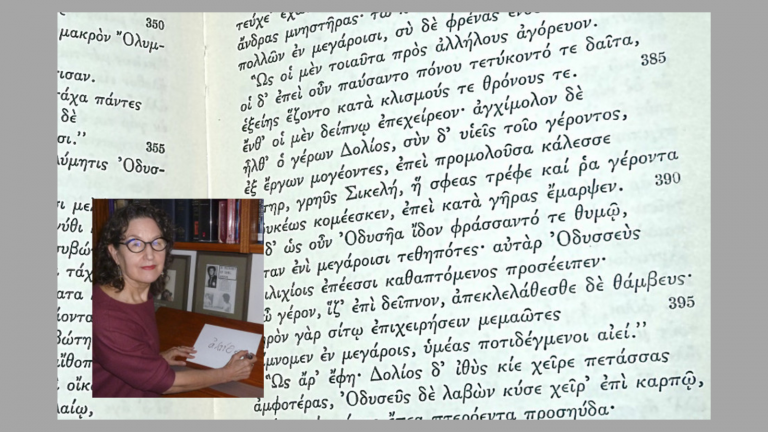 350
μακρὸν Ὄλυμ-
τισαν.
τάχα πάντες
δὲ
σι.” 355
λύμητις Ὀδυσ-
ἄνδρας μνηστῆρας·
πολλῶν ἐν μεγάροισι, σὺ δὲ φρένας
Ὣς οἱ μὲν τοιαῦτα πρὸς ἀλλήλους ἀγόρευον.
οἱ δ’ ἐπεὶ οὖν παύσαντο πόνου τετύκοντό τε δαῖτα, 385
ἑξείης ἕζοντο κατὰ κλισμούς τε θρόνους τε.
ἔνθ’ οἱ μὲν δείπνῳ ἐπεχείρεον· ἀγχίμολον δὲ
ἦλθ’ ὁ γέρων Δολίος, σὺν δ’ υἱεῖς τοῖο γέροντος,
ἐξ ἔργων μογέοντες, ἐπεὶ προμολοῦσα κάλεσσε
τηρ, γρηῢς Σικελή, ἥ σφεας τρέφε καί ῥα γέροντα
υκέως κομέεσκεν, ἐπεὶ κατὰ γῆρας ἔμαρψεν. 390
δ’ ὡς οὖν Ὀδυσῆα ἴδον φράσσαντό τε θυμῷ,
ταν ἐνὶ μεγάροισι τεθηπότες· αὐτὰρ Ὀδυσσεὺς
ιλιχίοις ἐπέεσσι καθαπτόμενος προσέειπεν·
γέρον, ἵζ’ ἐπὶ δεῖπνον, ἀπεκλελάθεσθε δὲ θάμβευς·
ρὸν γὰρ σίτῳ ἐπιχειρήσειν μεμαῶτες 395
μνομεν ἐν μεγάροις, ὑμέας ποτιδέγμενοι αἰεί.”
Ὣς ἄρ’ ἔφη· Δολίος δ’ ἰθὺς κίε χεῖρε πετάσσας
ἀμφοτέρας, Ὀδυσεῦς δὲ λαβὼν κύσε χεῖρ’ ἐπὶ καρπῷ,
ἔπεα πτερόεντα προσηύδα·